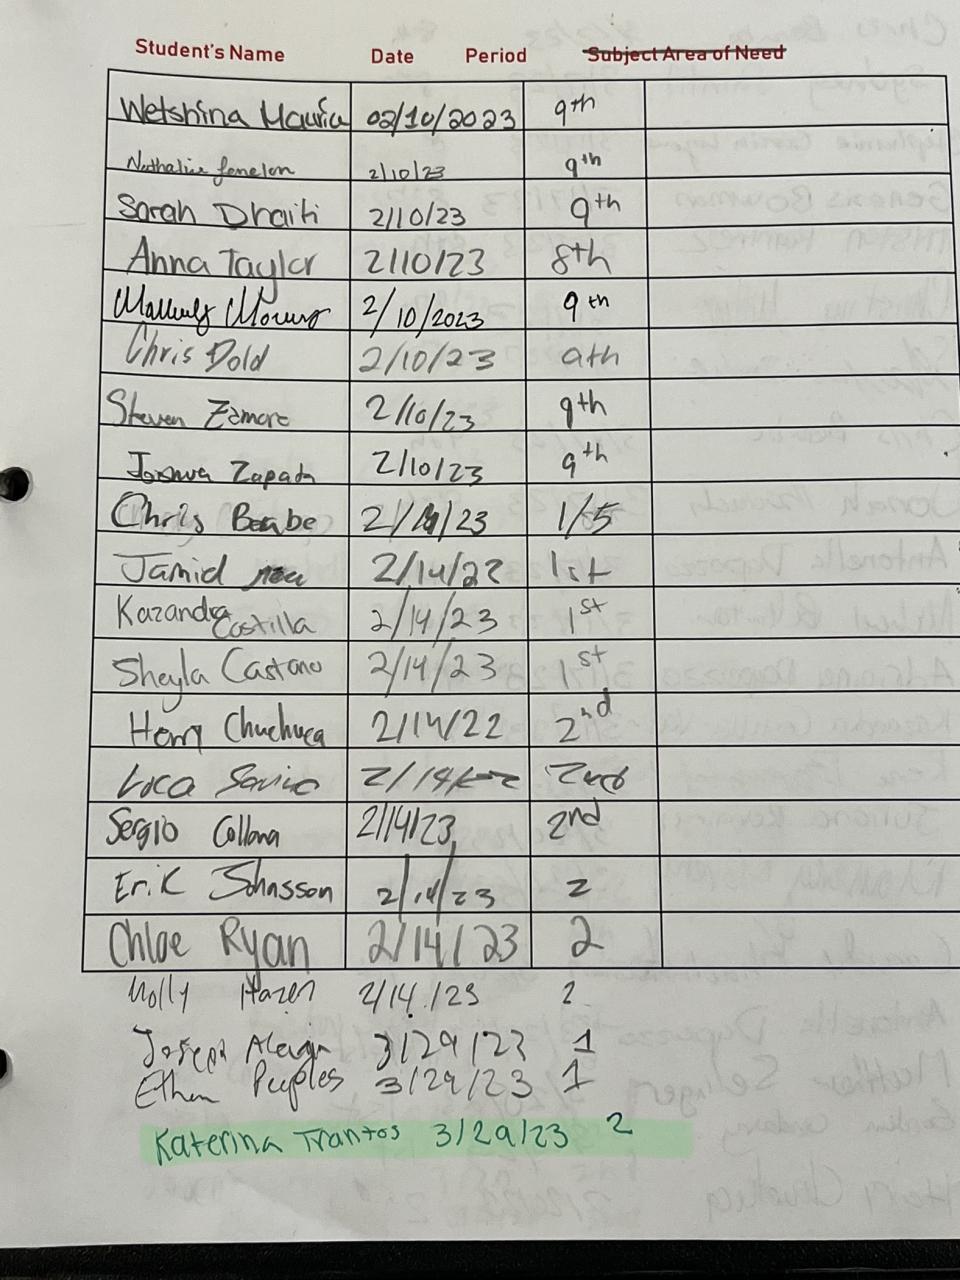 Student's Name Date Period Subject Area of Need
Wetshina Mauria 02/10/2023 9th
Nathalie fenelon 2/10/23 9th
Sarah Draiti 2/10/23 9th
Anna Taylor 2/10/23 8th
2/10/2023 9th
Chris Dold 2/10/23 9th
Steven Zamora 2/10/23 9th
Joshua Zapata 2/10/23 9th
Chris Beabe 2/14/23 1/5
Jamid 2/14/22 1st
Kazandra Costilla 2/14/23 1st
Sheyla Castano 2/14/23 1st
Henry Chuchuca 2/14/22 2nd
Luca Savino 2/14/ 2nd
Sergio Collona 2/14/23 2nd
Erik Johnsson 2/14/23 2
Chloe Ryan 2/14/23 2
Molly Hazen 2/14/23 2
Joseph 3/29/23 1
Ethan Peoples 3/29/23 1
Katerina Trantos 3/29/23 2